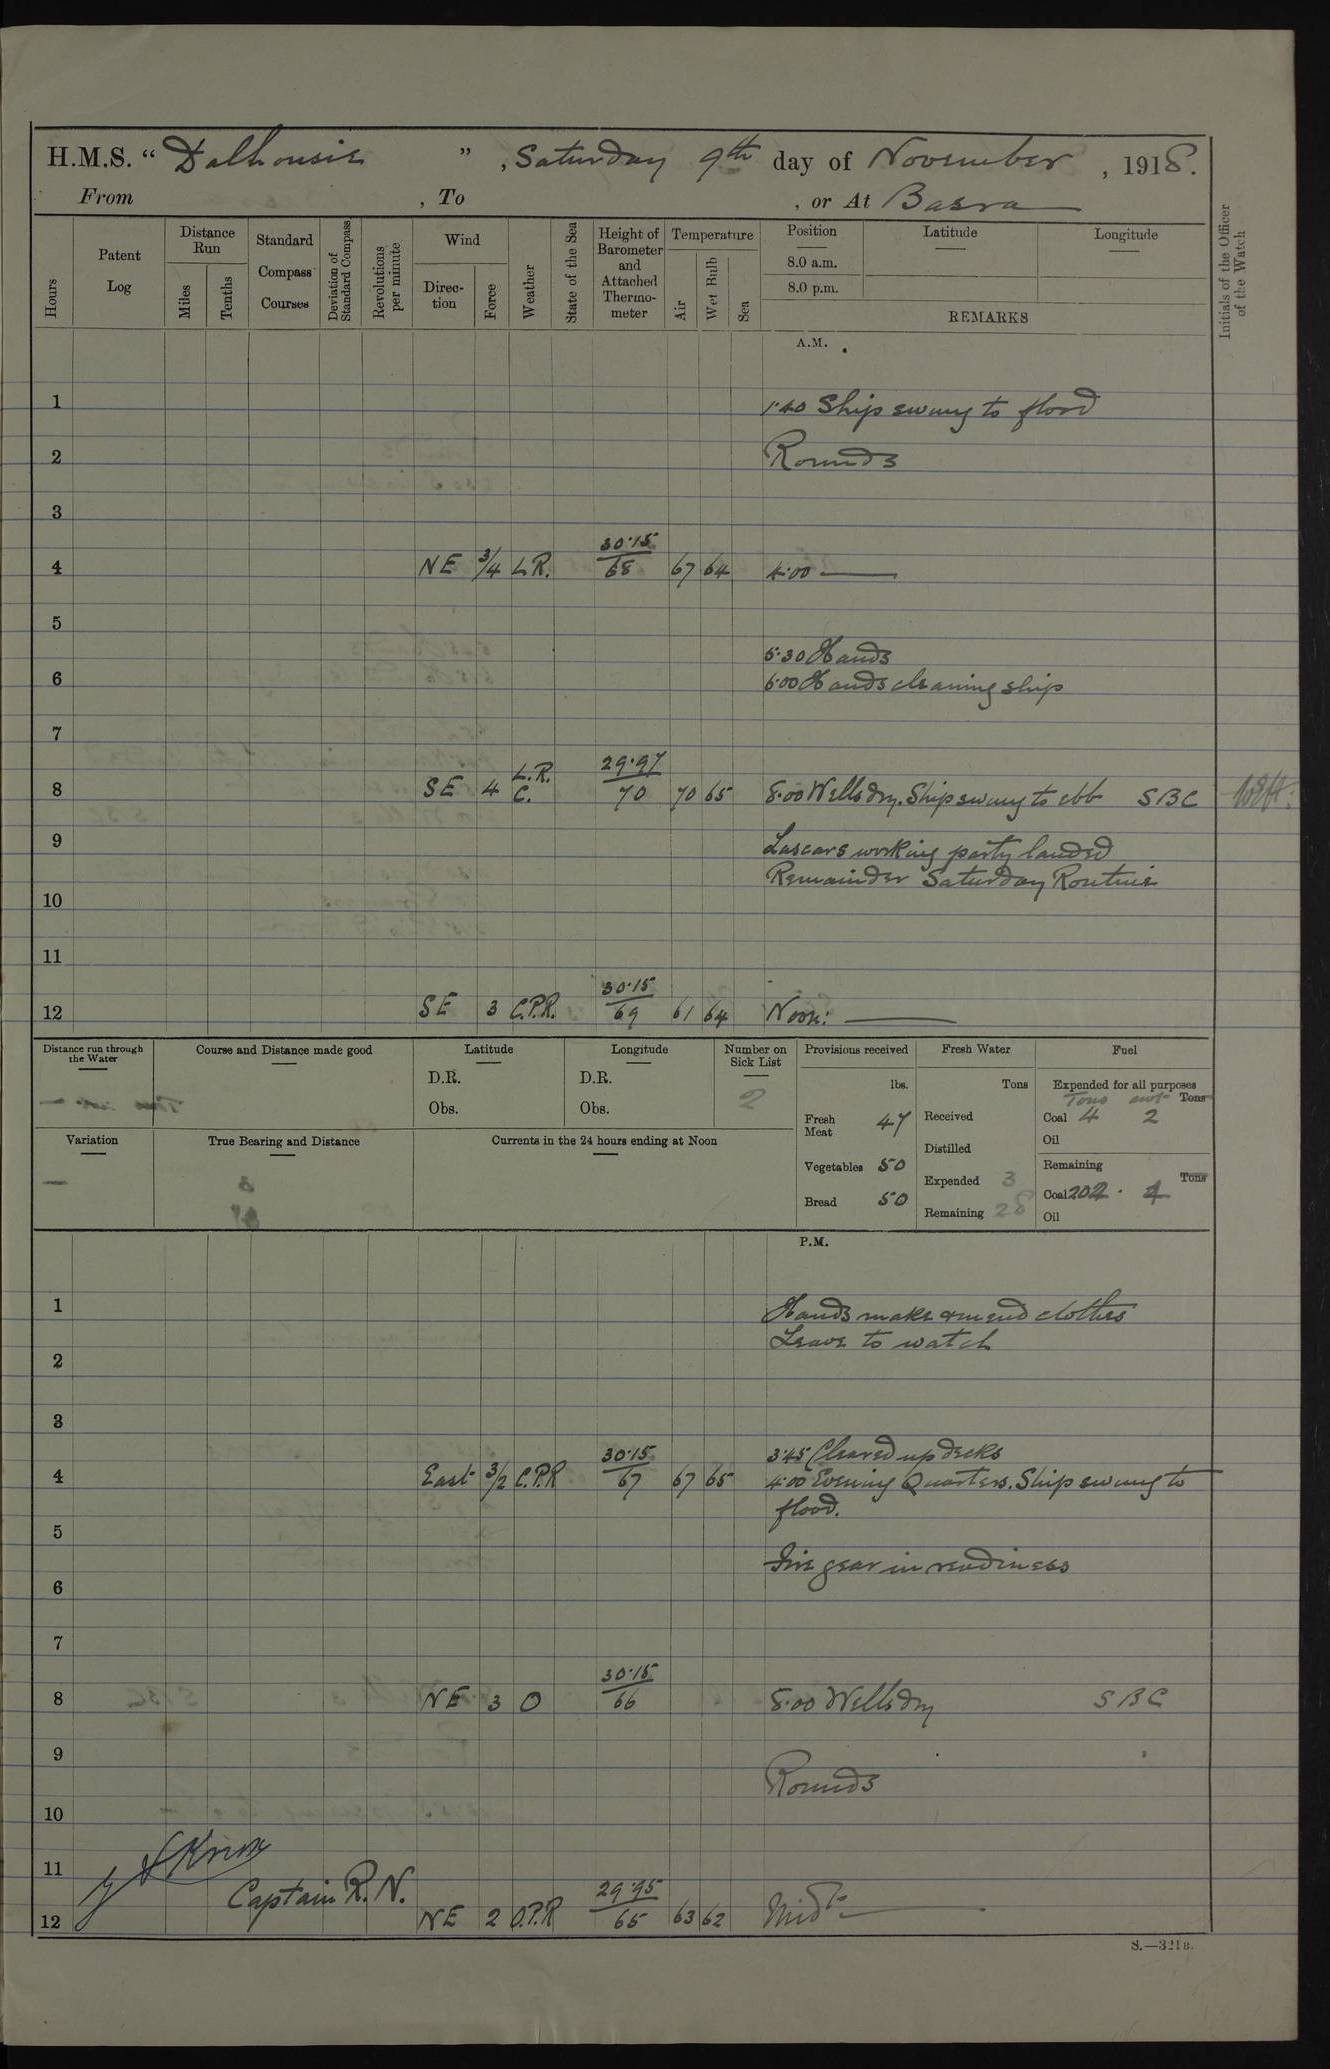 H.M.S. “ Dalhousie ” , Saturday 9th day of November , 1918.
From , To , or At Basra
Hours
Patent Log
Distance Run
Miles
Tenths
Standard Compass Courses
Deviation of Standard Compass
Revolutions per minute
Wind
Direc- tion
Force
Weather
State of the Sea
Height of Barometer and Attached Thermo- meter
Temperature
Air
Wet Bulb
Sea
Position
8.0 a.m.
8.0 p.m.
Latitude
Longitude
REMARKS
Initials of the Officer of the Watch
A.M.
1 1·40 Ship swung to flood
2 Rounds
3
30·15
4 NE 3/4 L.R. 68 67 64 4·00
5
5·30 Hands
6 6·00 Hands cleaning ship
7
L.R. 29·97
8 SE 4 C. 70 70 65 8·00 Wells dry. Ship swung to ebb SBC
9 Lascars working party landed
Remainder Saturday Routine
10
11
30·15
12 SE 3 C.P.R. 69 61 64 Noon:
Distance run through the Water
Course and Distance made good
Latitude
D.R.
Obs.
Longitude
D.R.
Obs.
Number on Sick List
2
Provisions received
lbs.
Fresh Meat 47
Vegetables 50
Bread 50
Fresh Water
Tons
Received
Distilled
Expended 3
Remaining 28
Fuel
Expended for all purposes
Tons cwt Tons
Coal 4 2
Oil
Remaining
Tons
Coal 202 · 4
Oil
Variation
True Bearing and Distance
Currents in the 24 hours ending at Noon
P.M.
1 Hands make & mend clothes
Leave to watch
2
3
30·15 3·45 Cleared up decks
4 East 3/2 C.P.R 67 67 65 4·00 Evening Quarters. Ship swung to
flood.
5
Fire gear in readiness
6
7
30·15
8 NE 3 O 66 8·00 Wells dry SBC
9
Rounds
10
11 Knox
Captain R.N.
29·95
12 NE 2 O.P.R 65 63 62 Midt
S.—321B.